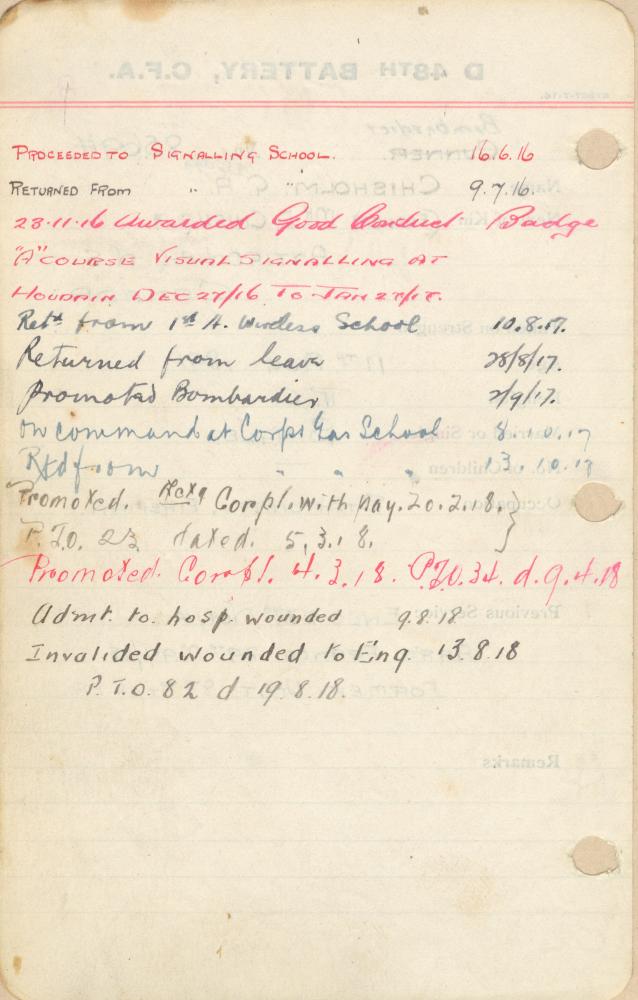 PROCEEDED TO SIGNALLING SCHOOL. 16.6.16
RETURNED FROM " " 9.7.16.
23.11.16 Awarded Good Conduct Badge
"A" COURSE VISUAL SIGNALLING AT
HOUDAIN DEC 27/16 TO JAN 27/17.
Retd from 1st A. Wireless School 10.8.17.
Returned from leave 28/8/17.
Promoted Bombardier 2/9/17.
On command at Corps Gas School 8.10.17
Rtd from " " " 13.10.17
Promoted. Actg Corpl. with pay. 20.2.18. }
P.T.O. 23 dated. 5.3.18.
Promoted. Corpl. 4.3.18. P.T.O. 34. d. 9.4.18
Admt. to hosp. wounded 9.8.18
Invalided wounded to Eng. 13.8.18
P.T.O. 82 d 19.8.18.